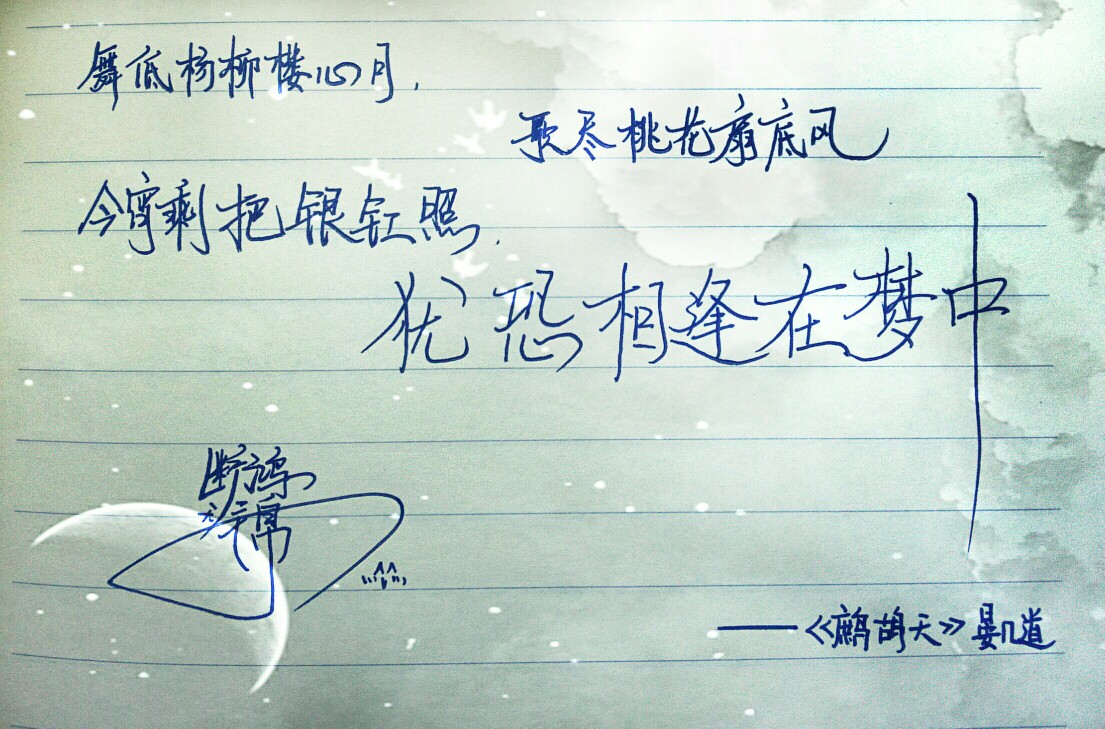 舞低杨柳楼心月,
歌尽桃花扇底风
今宵剩把银釭照,
犹恐相逢在梦中
断鸿
——《鹧鸪天》晏几道